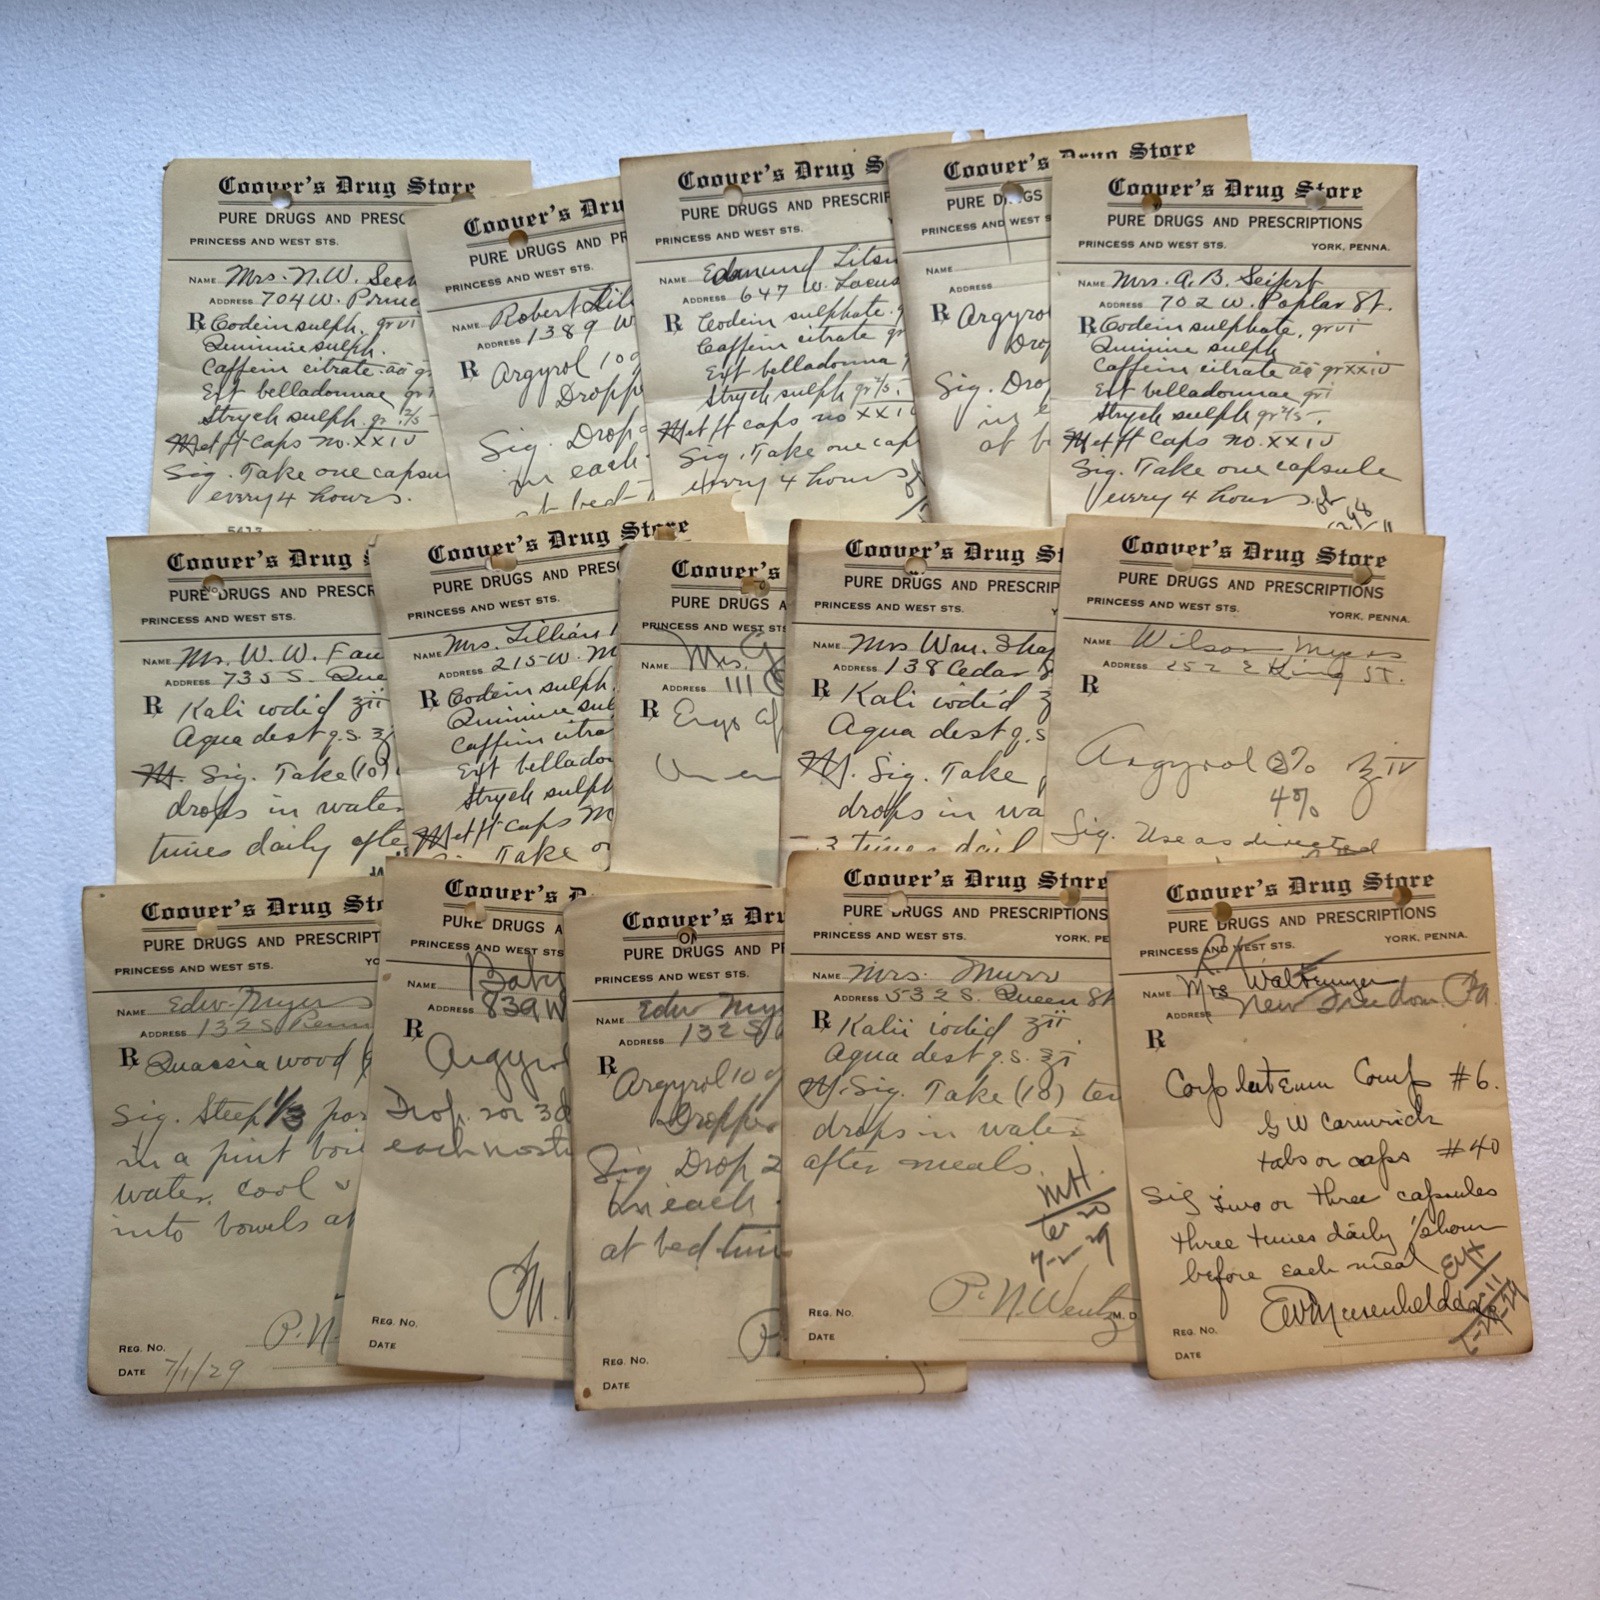 Coover's Drug Store
PURE DRUGS AND PRESC
PRINCESS AND WEST STS.
NAME Mrs. N.W. Seek
ADDRESS 704 W. Prince
℞ Codein sulph. gr vi
Quinine sulph.
Caffein citrate aa g
Ext belladonnae gr
Strych sulph. gr 2/5
M et ft caps no. XXIV
Sig. Take one capsu
every 4 hours.
5613
Coover's Dru
PURE DRUGS AND PR
PRINCESS AND WEST STS.
NAME Robert
ADDRESS 1389 W
℞ Argyrol 10
Dropp
Sig. Drop
in each
at bed
Coover's Drug S
PURE DRUGS AND PRESCRIP
PRINCESS AND WEST STS.
NAME Edmund Litsu
ADDRESS 647 W. Locus
℞ Codein sulphate g
Caffein citrate gr
Ext belladonna
Strych sulph gr 2/5.
M et ft caps no XXI
Sig. Take one cap
every 4 hours
Coover's Drug Store
PURE DRUGS
PRINCESS AND WEST S
NAME
ADDRESS
℞ Argyro
Drop
Sig. Dro
in e
at b
Coover's Drug Store
PURE DRUGS AND PRESCRIPTIONS
PRINCESS AND WEST STS. YORK, PENNA.
NAME Mrs. A. B. Seifert
ADDRESS 702 W. Poplar St.
℞ Codein sulphate, gr vi
Quinine sulph
Caffein citrate aa gr xxiv
Ext belladonnae gr i
Strych sulph gr 2/5.
M et ft caps no. XXIV
Sig. Take one capsule
every 4 hours.
Coover's Drug S
PURE DRUGS AND PRESCR
PRINCESS AND WEST STS.
NAME Mr. W. W. Fau
ADDRESS 735 S. Que
℞ Kali iodid ʒii
Aqua dest q.s. ʒ
M. Sig. Take (10)
drops in water
times daily afte
JA
Coover's Drug Store
PURE DRUGS AND PRES
PRINCESS AND WEST STS.
NAME Mrs. Lillian
ADDRESS 215 W. M
℞ Codein sulph.
Quinine sul
Caffein citra
Ext bellado
Strych sulph
M et ft caps
Take o
Coover's
PURE DRUGS A
PRINCESS AND WEST STS
NAME Mrs. G
ADDRESS 111
℞
Coover's Drug St
PURE DRUGS AND PRESCRIP
PRINCESS AND WEST STS. Y
NAME Mrs Wm. Sha
ADDRESS 138 Cedar S
℞ Kali iodid ʒ
Aqua dest q.s
M. Sig. Take
drops in wa
3 times dail
Coover's Drug Store
PURE DRUGS AND PRESCRIPTIONS
PRINCESS AND WEST STS. YORK, PENNA.
NAME Wilson Myers
ADDRESS 252 E King St.
℞
Argyrol % ʒ IV
4%
Sig. Use as directed
Coover's Drug Sto
PURE DRUGS AND PRESCRIPT
PRINCESS AND WEST STS. YO
NAME Edw. Myers
ADDRESS 132 S Penn
℞ Quassia wood
Sig. Steep 1/3 par
in a pint boi
water, cool
into bowels at
P. N.
REG. NO.
DATE 7/1/29
Coover's D
PURE DRUGS A
PRINCESS AND WEST STS
NAME Baby
ADDRESS 839 W
℞ Argyrol
Drop 2 or 3 d
each nostr
REG. NO.
DATE
Coover's Dru
PURE DRUGS AND P
PRINCESS AND WEST STS.
NAME Edw Mye
ADDRESS 132 S
℞ Argyrol 10
Dropper
Sig Drop 2
in each
at bed time
P
REG. NO.
DATE
Coover's Drug Store
PURE DRUGS AND PRESCRIPTIONS
PRINCESS AND WEST STS. YORK, PE
NAME Mrs. Murr
ADDRESS 532 S. Queen St
℞ Kalii iodid ʒii
Aqua dest q.s. ʒi
M. Sig. Take (10) ten
drops in water
after meals.
7-2-29
P. N. Wentz M.D.
REG. NO.
DATE
Coover's Drug Store
PURE DRUGS AND PRESCRIPTIONS
PRINCESS AND WEST STS. YORK, PENNA.
R.K.
NAME Mrs Waltemyer
ADDRESS New Freedom Pa.
℞
Corp luteum Comp #6.
G W Carnrick
tabs or caps #40
Sig Two or three capsules
three times daily 1/2 hour
before each meal
REG. NO.
DATE